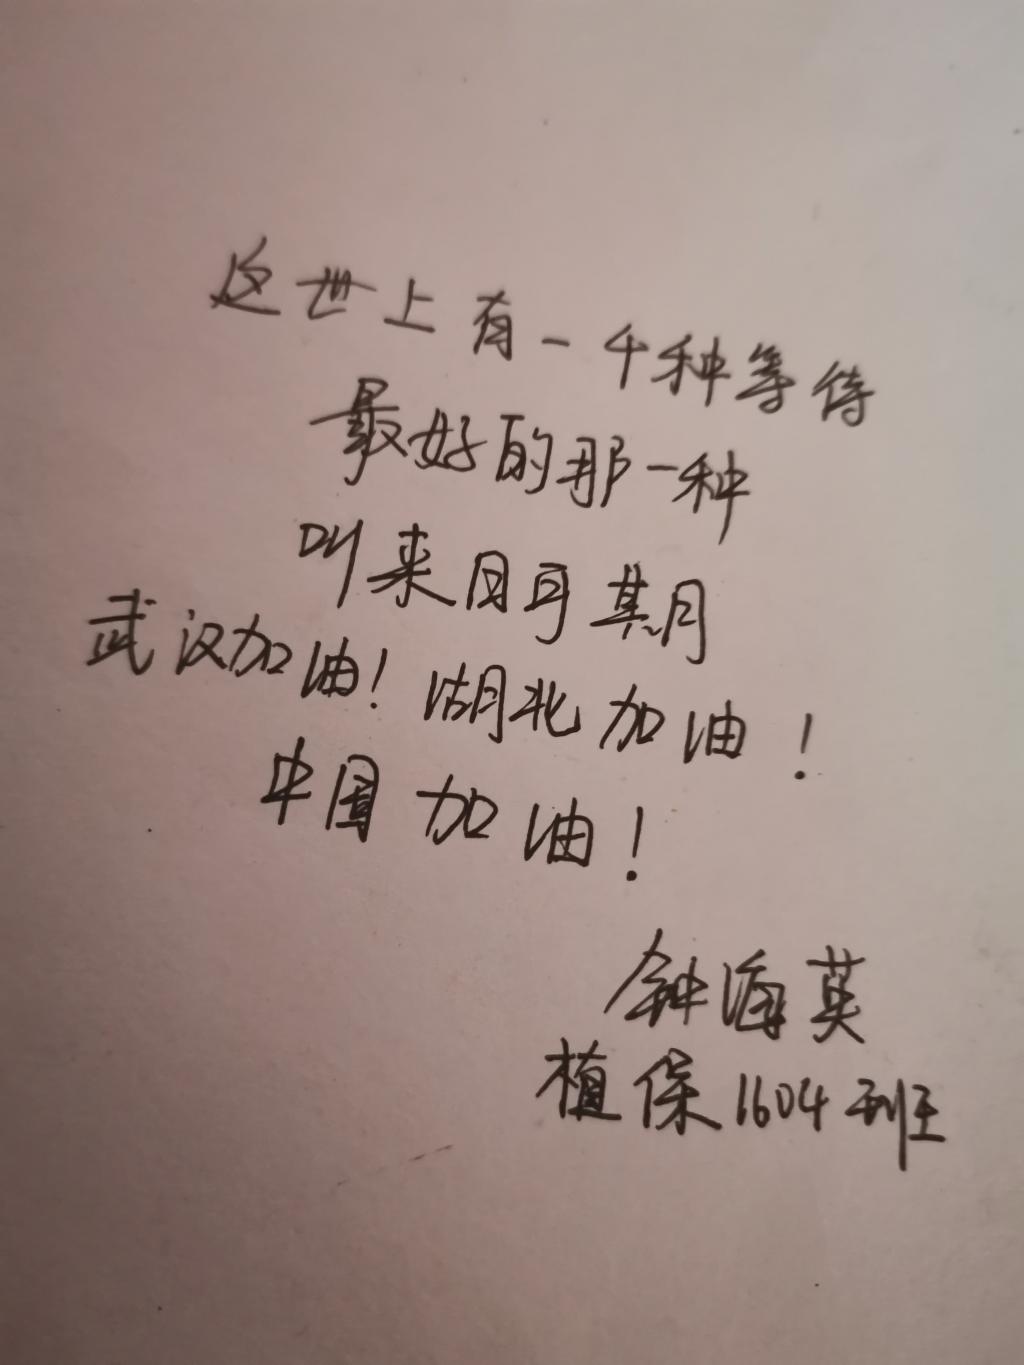 这世上有一千种等待
最好的那一种
叫来日可期
武汉加油！湖北加油！
中国加油！
钟海英
植保1604班